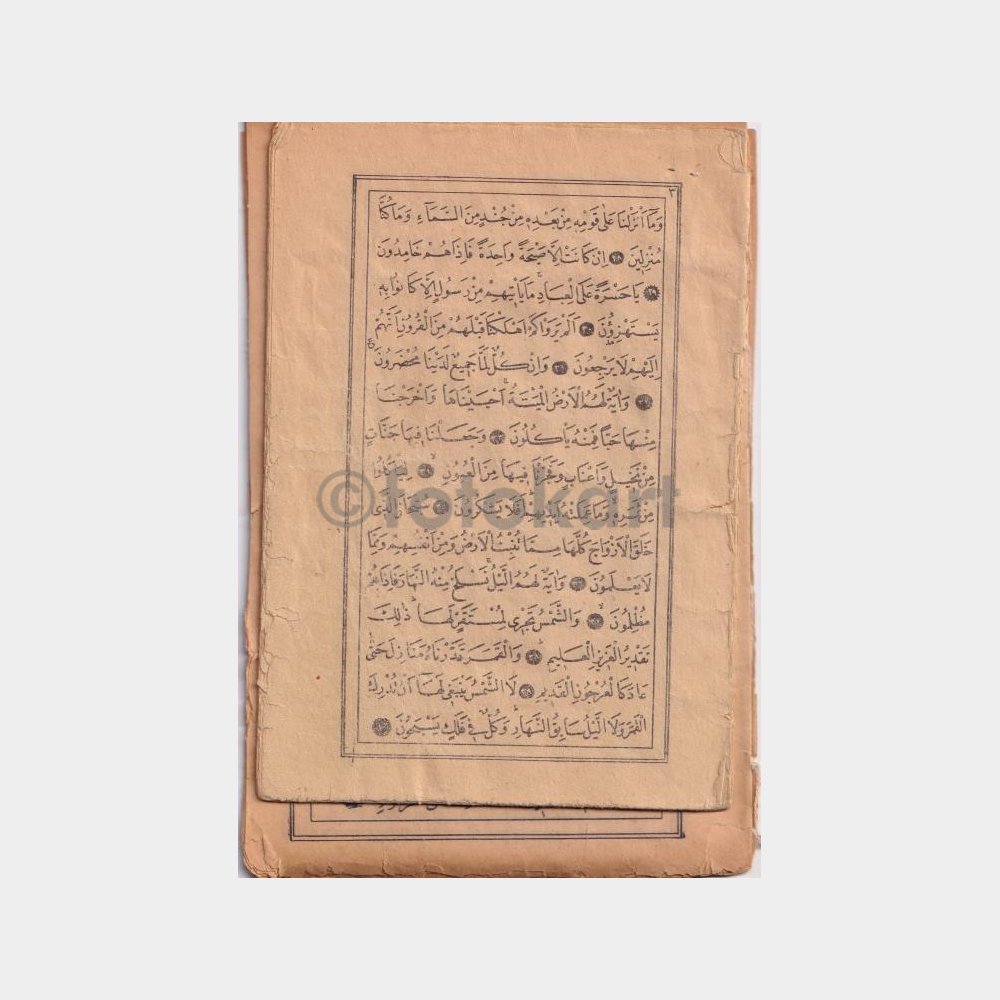 ٣
وَمَآ اَنْزَلْنَا عَلٰى قَوْمِهٖ مِنْ بَعْدِهٖ مِنْ جُنْدٍ مِنَ السَّمَآءِ وَمَا كُنَّا
مُنْزِلٖينَ ٢٨ اِنْ كَانَتْ اِلَّا صَيْحَةً وَاحِدَةً فَاِذَا هُمْ خَامِدُونَ
٢٩ يَا حَسْرَةً عَلَى الْعِبَادِ مَا يَاْتٖيهِمْ مِنْ رَسُولٍ اِلَّا كَانُوا بِهٖ
يَسْتَهْزِؤُنَ ٣٠ اَلَمْ يَرَوْا كَمْ اَهْلَكْنَا قَبْلَهُمْ مِنَ الْقُرُونِ اَنَّهُمْ
اِلَيْهِمْ لَا يَرْجِعُونَ ٣١ وَاِنْ كُلٌّ لَمَّا جَمٖيعٌ لَدَيْنَا مُحْضَرُونَ ع
٣٢ وَاٰيَةٌ لَهُمُ الْاَرْضُ الْمَيْتَةُ اَحْيَيْنَاهَا وَاَخْرَجْنَا
مِنْهَا حَبًّا فَمِنْهُ يَاْكُلُونَ ٣٣ وَجَعَلْنَا فٖيهَا جَنَّاتٍ
مِنْ نَخٖيلٍ وَاَعْنَابٍ وَفَجَّرْنَا فٖيهَا مِنَ الْعُيُونِ ٣٤ لِيَاْكُلُوا
مِنْ ثَمَرِهٖ وَمَا عَمِلَتْهُ اَيْدٖيهِمْ اَفَلَا يَشْكُرُونَ ٣٥ سُبْحَانَ الَّذٖى
خَلَقَ الْاَزْوَاجَ كُلَّهَا مِمَّا تُنْبِتُ الْاَرْضُ وَمِنْ اَنْفُسِهِمْ وَمِمَّا
لَا يَعْلَمُونَ ٣٦ وَاٰيَةٌ لَهُمُ الَّيْلُ نَسْلَخُ مِنْهُ النَّهَارَ فَاِذَا هُمْ
مُظْلِمُونَ ٣٧ وَالشَّمْسُ تَجْرٖى لِمُسْتَقَرٍّ لَهَا ذٰلِكَ
تَقْدٖيرُ الْعَزٖيزِ الْعَلٖيمِ ٣٨ وَالْقَمَرَ قَدَّرْنَاهُ مَنَازِلَ حَتّٰى
عَادَ كَالْعُرْجُونِ الْقَدٖيمِ ٣٩ لَا الشَّمْسُ يَنْبَغٖى لَهَا اَنْ تُدْرِكَ
الْقَمَرَ وَلَا الَّيْلُ سَابِقُ النَّهَارِ وَكُلٌّ فٖى فَلَكٍ يَسْبَحُونَ ٤٠
©fotokart